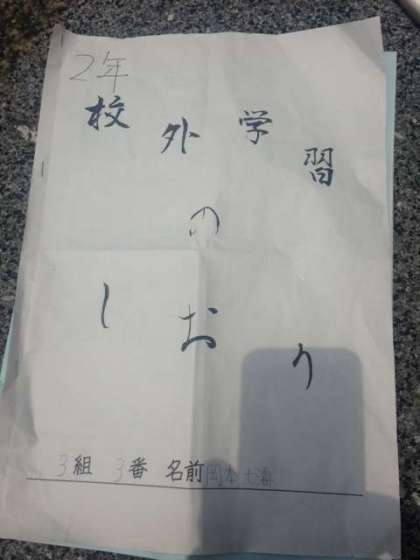 2年
校外学習
の
しおり
3組 3番 名前 岡本七海